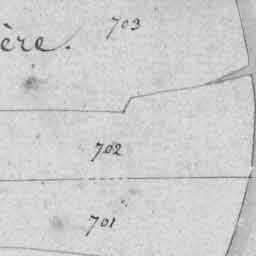 703
ère.
702
701